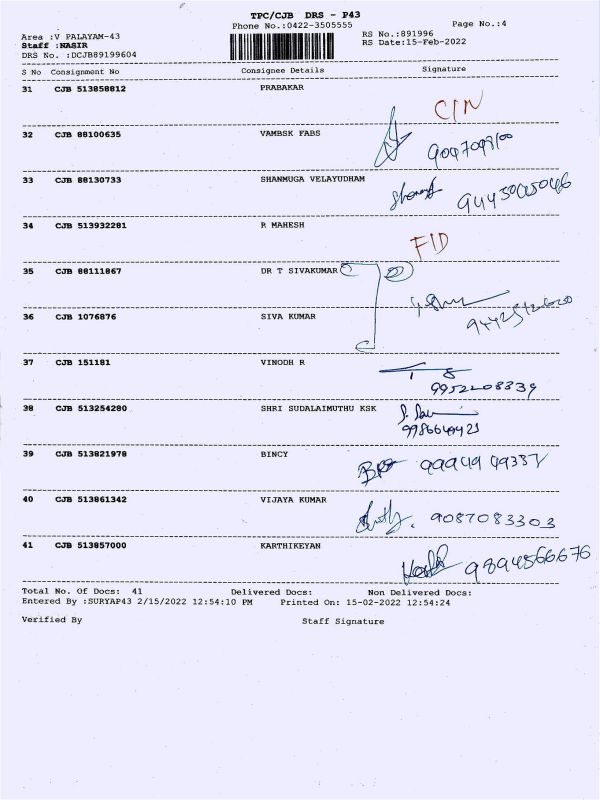 TPC/CJB DRS - P43
Phone No.:0422-3505555
Page No.:4
Area :V PALAYAM-43
RS No.:891996
Staff :NASIR
RS Date:15-Feb-2022
DRS No. :DCJB89199604
S No Consignment No Consignee Details Signature
31 CJB 513858812 PRABAKAR
32 CJB 88100635 VAMBSK FABS
33 CJB 88130733 SHANMUGA VELAYUDHAM
34 CJB 513932281 R MAHESH
FID
35 CJB 88111867 DR T SIVAKUMAR
36 CJB 1076876 SIVA KUMAR
37 CJB 151181 VINODH R
9952208339
38 CJB 513254280 SHRI SUDALAIMUTHU KSK
39 CJB 513821978 BINCY
40 CJB 513861342 VIJAYA KUMAR
9087083303
41 CJB 513857000 KARTHIKEYAN
9894566676
Total No. Of Docs: 41 Delivered Docs: Non Delivered Docs:
Entered By :SURYAP43 2/15/2022 12:54:10 PM Printed On: 15-02-2022 12:54:24
Verified By Staff Signature